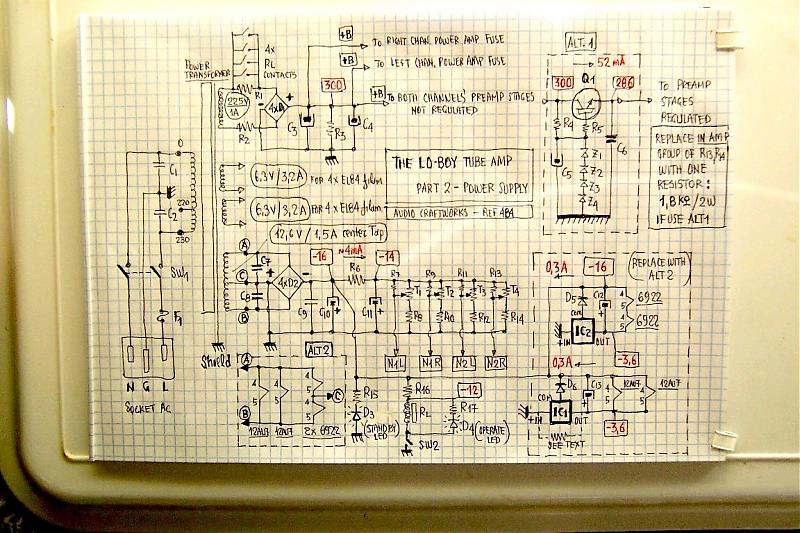 +B
TO RIGHT CHAN. POWER AMP FUSE
+B
TO LEFT CHAN. POWER AMP FUSE
+B
TO BOTH CHANNELS' PREAMP STAGES
NOT REGULATED
4x
RL
CONTACTS
POWER
TRANSFORMER
225V
1A
R1
R2
4xD1
+
C3
300
R3
C4
ALT. 1
52 mA
300
Q1
286
R4
R5
C5
C6
Z1
Z2
Z3
Z4
TO PREAMP
STAGES
REGULATED
REPLACE IN AMP
GROUP OF R13, R14
WITH ONE
RESISTOR:
1,8KΩ/2W
IF USE ALT1
THE LO-BOY TUBE AMP
PART 2 - POWER SUPPLY
AUDIO CRAFTWORKS - REF. 484
6.3V/3,2A FOR 4x EL84 filam.
6.3V/3,2A FOR 4x EL84 filam.
12,6V/1,5A center Tap
0
C1
220
C2
230
SW1
F1
N G L
SOCKET AC
Shield
A
C7
C
C8
B
4xD2
C9
-16
≈4mA
R6
-14
C10
C11
R7 R9 R11 R13
T1 T2 T3 T4
R8 R10 R12 R14
N1L N1R N2L N2R
ALT2
A
B
C
4
5
4
5
4
5
4
5
12AU7 12AU7 2x 6922
R15
D3
(STANDBY
LED)
R16
RL
SW2
-12
R17
D4
(OPERATE
LED)
0,3A
-16
REPLACE WITH
ALT 2
D5
C12
COM
IC2
+IN
OUT
4
5
6922
4
5
6922
-3,6
0,3A
D6
C13
COM
IC1
+IN
OUT
SEE TEXT
4
5
12AU7
4
5
12AU7
-3,6